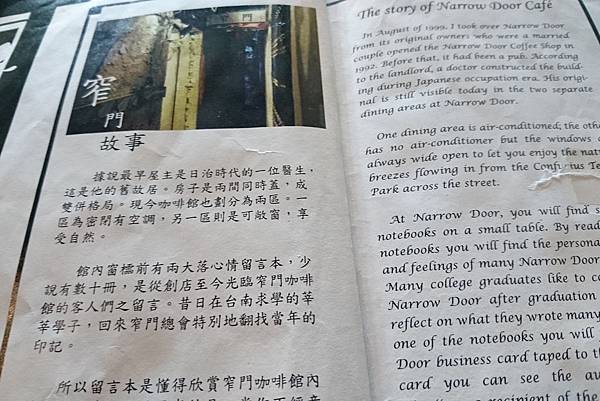 窄
門
門
故事
據說最早屋主是日治時代的一位醫生，
這是他的舊故居。房子是兩間同時蓋，成
雙併格局。現今咖啡館也劃分為兩區。一
區為密閉有空調，另一區則是可敞窗，享
受自然。
館內窗檯前有兩大落心情留言本，少
說有數十冊，是從創店至今光臨窄門咖啡
館的客人們之留言。昔日在台南求學的莘
莘學子，回來窄門總會特別地翻找當年的
印記。
所以留言本是懂得欣賞窄門咖啡館內
The story of Narrow Door Café
In August of 1999, I took over Narrow Door
from its original owners who were a married
couple opened the Narrow Door Coffee Shop in
1992. Before that, it had been a pub. According
to the landlord, a doctor constructed the build-
ing during Japanese occupation era. His origi-
nal is still visible today in the two separate
dining areas at Narrow Door.
One dining area is air-conditioned; the othe
has no air-conditioner but the windows
always wide open to let you enjoy the natu
breezes flowing in from the Confucius Te
Park across the street.
At Narrow Door, you will find s
notebooks on a small table. By read
notebooks you will find the persona
and feelings of many Narrow Door
Many college graduates like to co
Narrow Door after graduation
reflect on what they wrote many
one of the notebooks you will
Door business card taped to th
card you can see the au
recipient of the